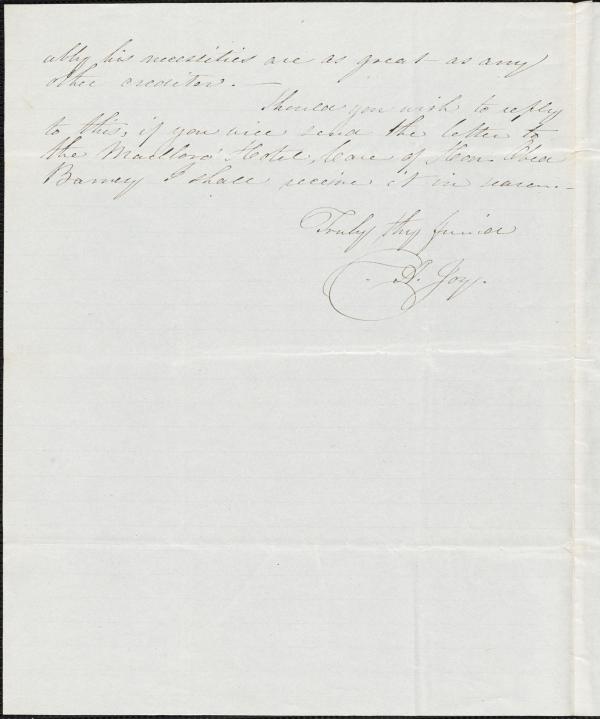 ably his necessities are as great as any
other creditor. —
Should you wish to reply
to this, if you will send the letter to
the Marlboro' Hotel, Care of Hon. Obed
Barney I shall receive it in season. –
Truly thy friend
D. Joy.